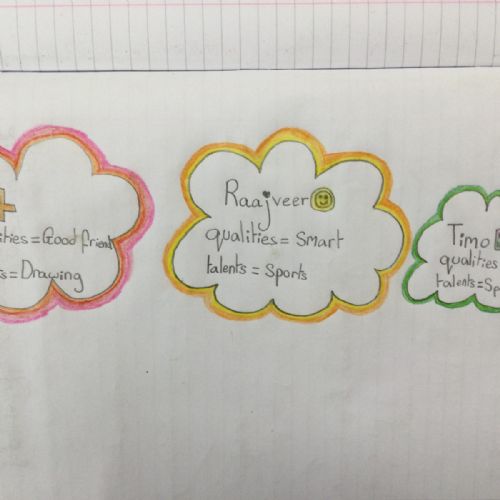 ities = Good friend
s = Drawing
Raajveer
qualities = Smart
talents = Sports
Timo
qualities
talents = Sp